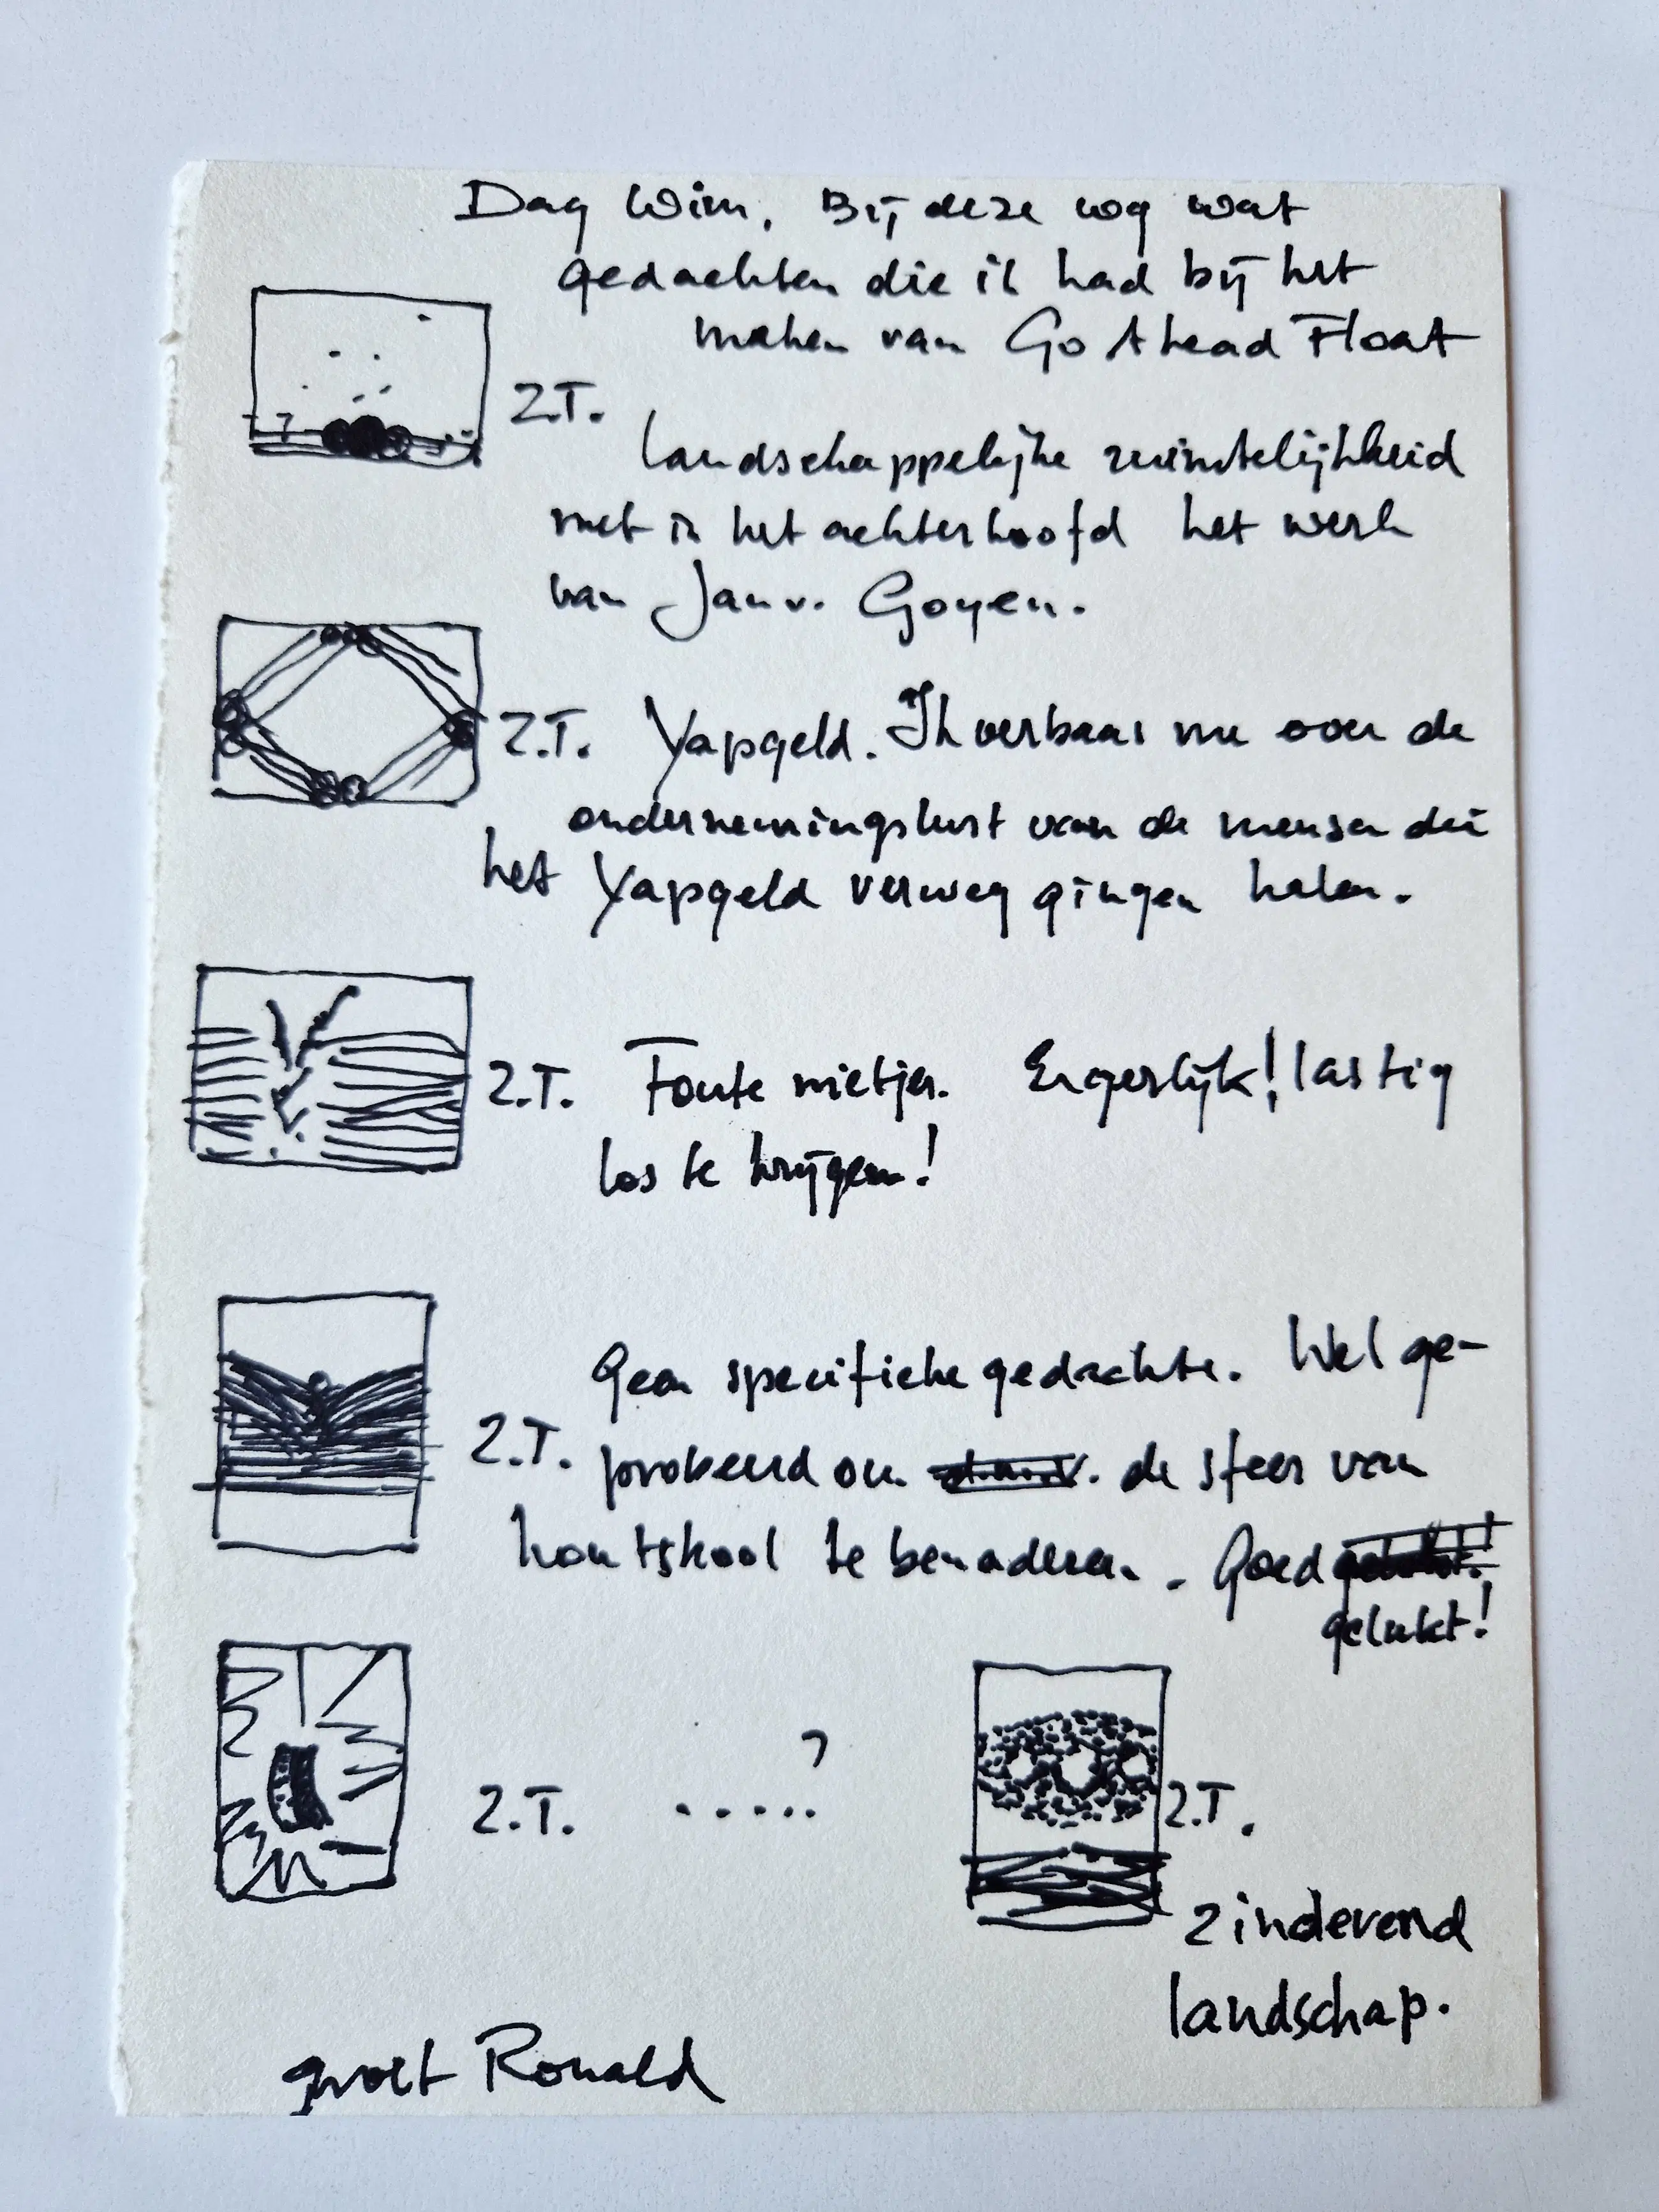 Dag Wim. Bij deze nog wat
gedachten die ik had bij het
maken van Go Ahead Float
Z.T.
Landschappelijke ruimtelijkheid
met in het achterhoofd het werk
van Jan v. Goyen.
Z.T. Yapgeld. Ik verbaas me over de
ondernemingslust van de mensen die
het Yapgeld verweg gingen halen.
Z.T. Foute nietjes. Ergerlijk! lastig
los te krijgen!
Geen specifieke gedachte. Wel ge-
Z.T. probeerd om de sfeer van
houtskool te benaderen. Goed
gelukt!
Z.T. .....?
Z.T.
Zinderend
landschap.
groet Ronald